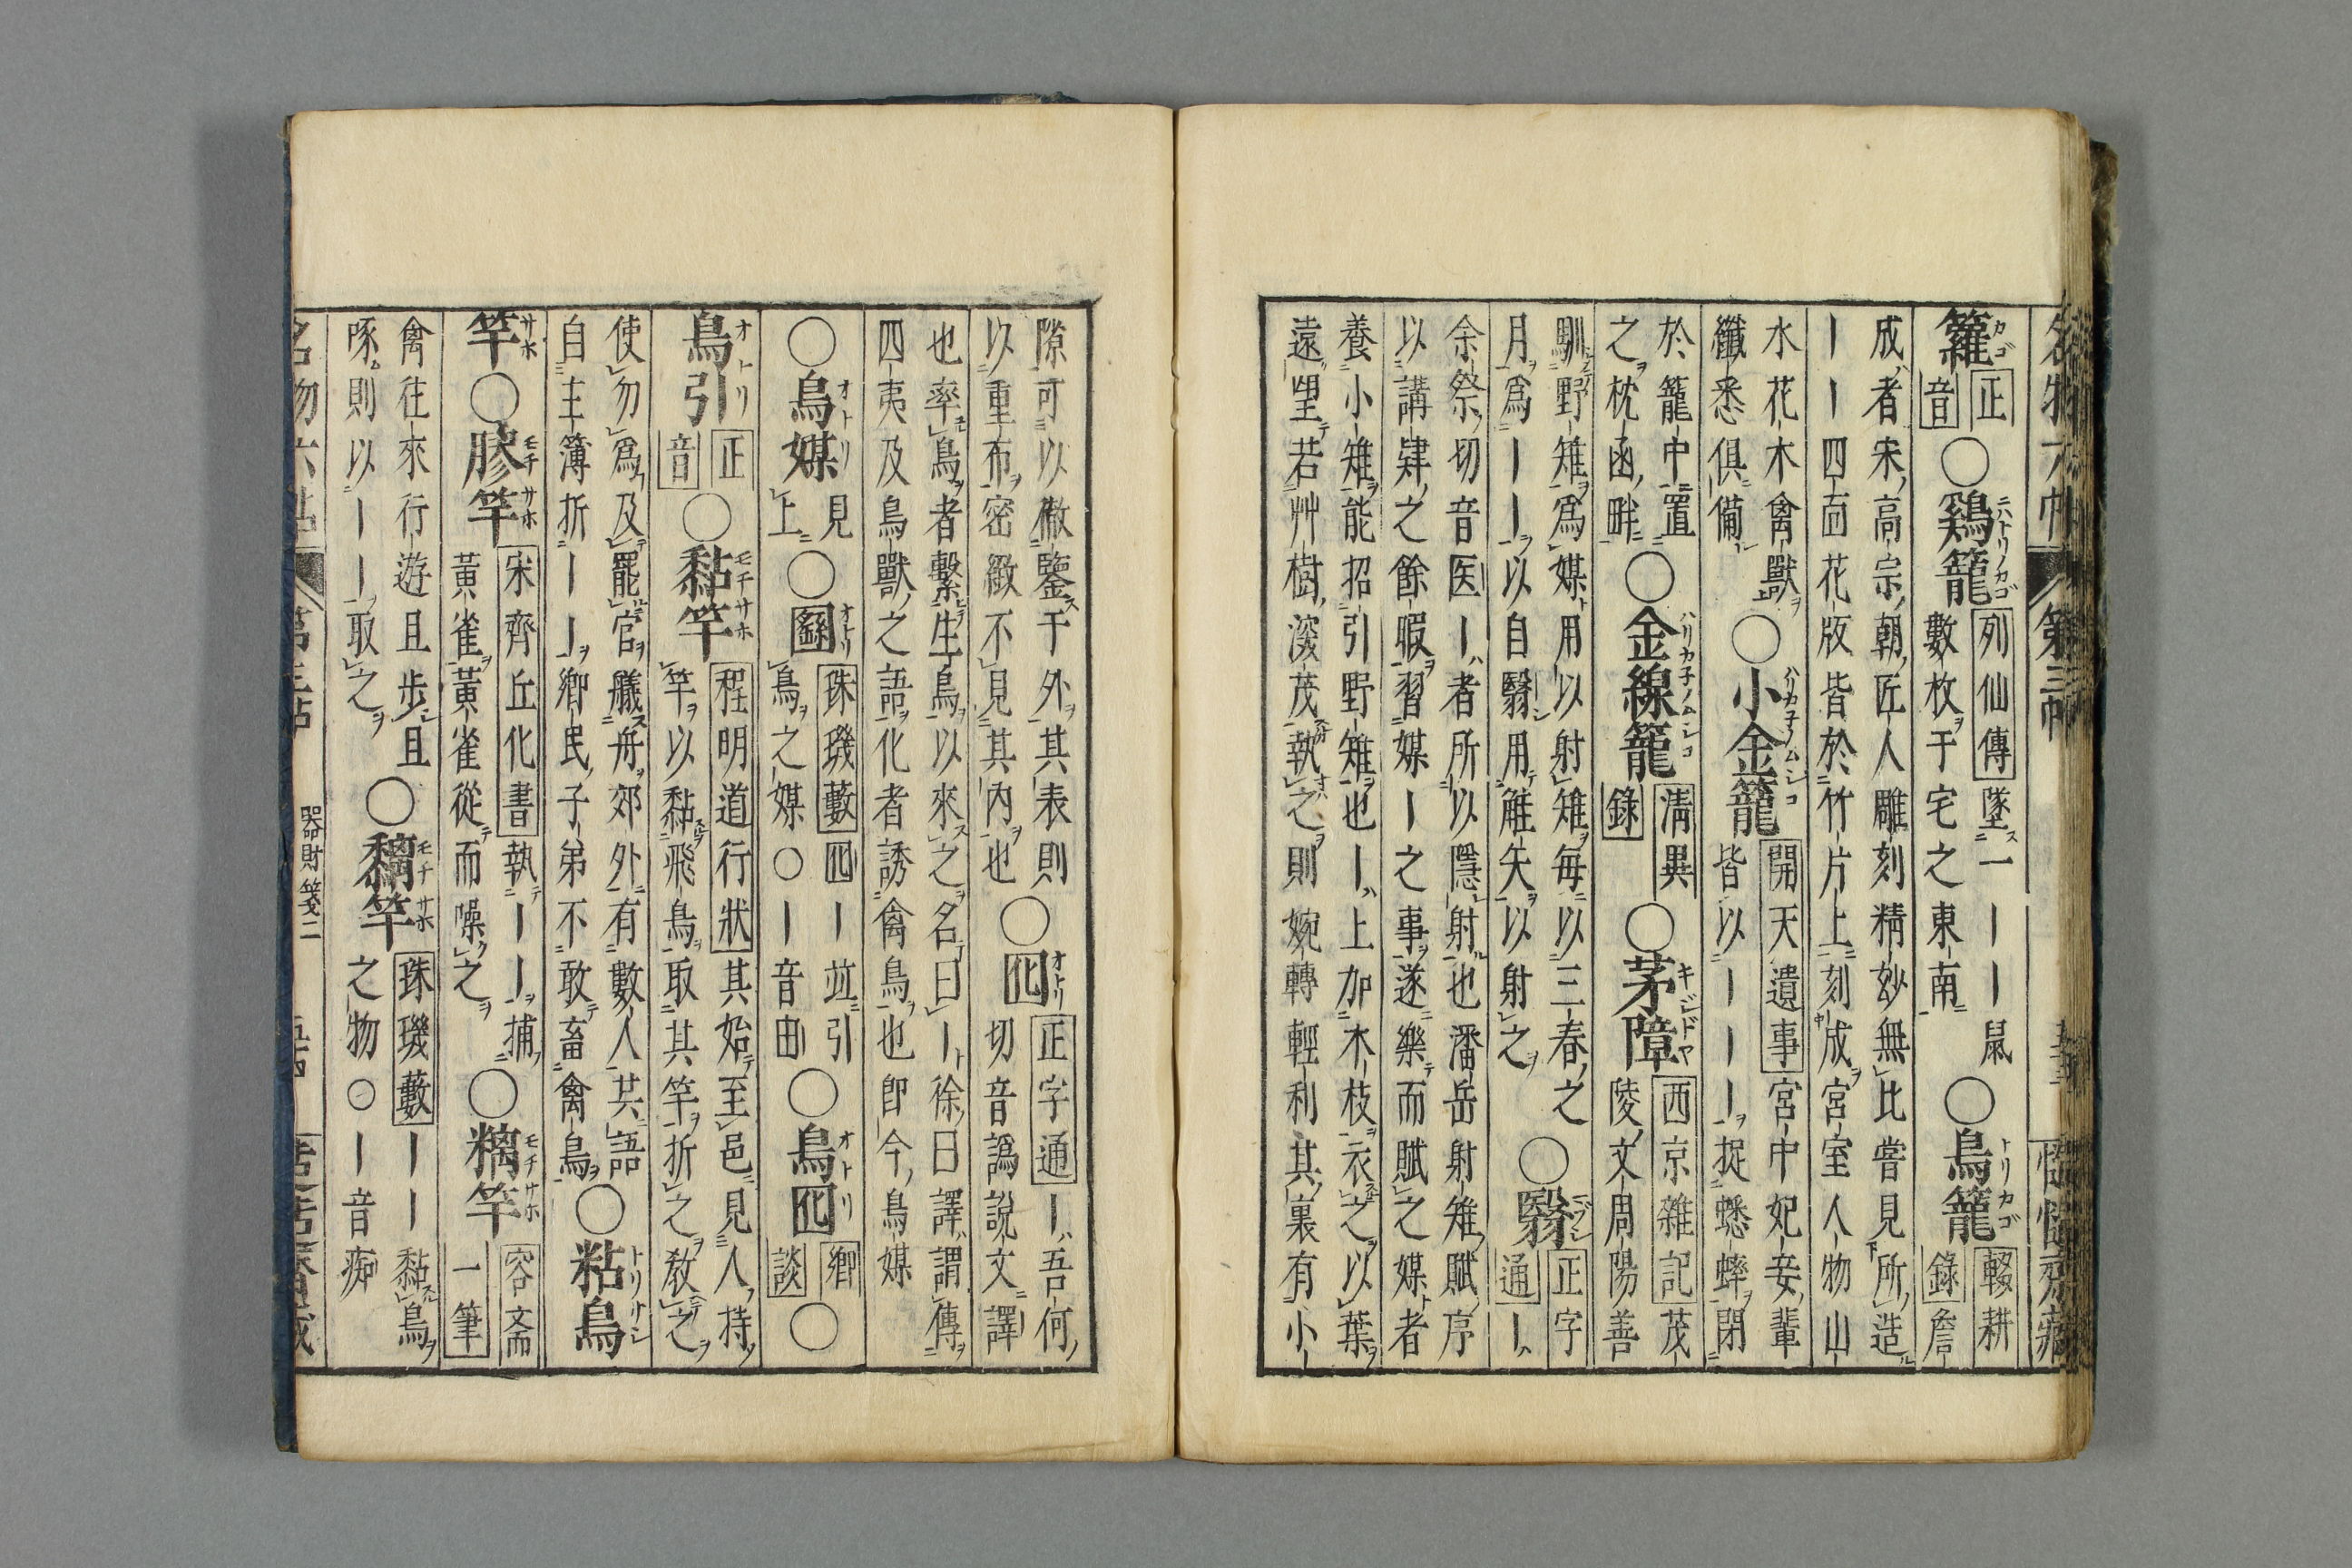 名物六帖 第三帖
籮 正
音 ○鶏籠 列仙傳墜一丨丨鼠
數枚于宅之東南 ○鳥籠 輟耕
錄詹
成者宋高宗朝匠人雕刻精妙無比嘗見所造
丨丨四面花版皆於竹片上刻成宮室人物山
水花木禽獸
纖悉俱備 ○小金籠 開天遺事宮中妃妾輩
皆以丨丨丨捉蟋蟀閉
於籠中置
之枕函畔 ○金線籠 淸異
錄 ○茅障 西京雜記茂
陵文周陽善
馴野雉爲媒用以射雉毎以三春之
月爲丨丨以自翳用觟矢以射之 ○翳 正字
通丨
余祭切音医丨者所以隱射也潘岳射雉賦序
以講肄之餘暇習媒丨之事遂樂而賦之媒者
養小雉能招引野雉也丨上加木枝衣之以葉
遠望若艸樹深茂執之則婉轉輕利其裏有小
隙可以徹鑒于外其表則
以重布密緻不見其內也 ○囮 正字通丨吾何
切音譌說文譯
也率鳥者繫生鳥以來之名曰丨徐曰譯謂傳
四夷及鳥獸之語化者誘禽鳥也卽今鳥媒
○鳥媒 見
上 ○𡈙 珠璣藪囮丨竝引
鳥之媒○丨音由 ○鳥囮 鄉
談 ○
鳥引 正
音 ○黏竿 程明道行狀其始至邑見人持
竿以黏飛鳥取其竿折之教之
使勿爲及罷官艤舟郊外有數人共語
自主簿折丨丨鄉民子弟不敢畜禽鳥 ○粘鳥
竿○膠竿 宋齊丘化書執丨丨捕
黃雀黃雀從而噪之 ○竿 容斎
一筆
禽往來行遊且歩且
啄則以丨丨取之 ○黐竿 珠璣藪丨丨黏鳥
之物○丨音痴
名物六帖 第三帖 器財箋二